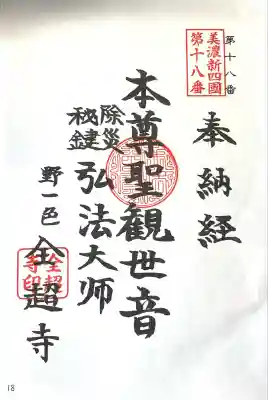 第十八番
美濃新四國
第十八番
奉納経
本尊聖観世音
除災
秘鍵
弘法大師
野一邑
全超寺
全超
寺印
18